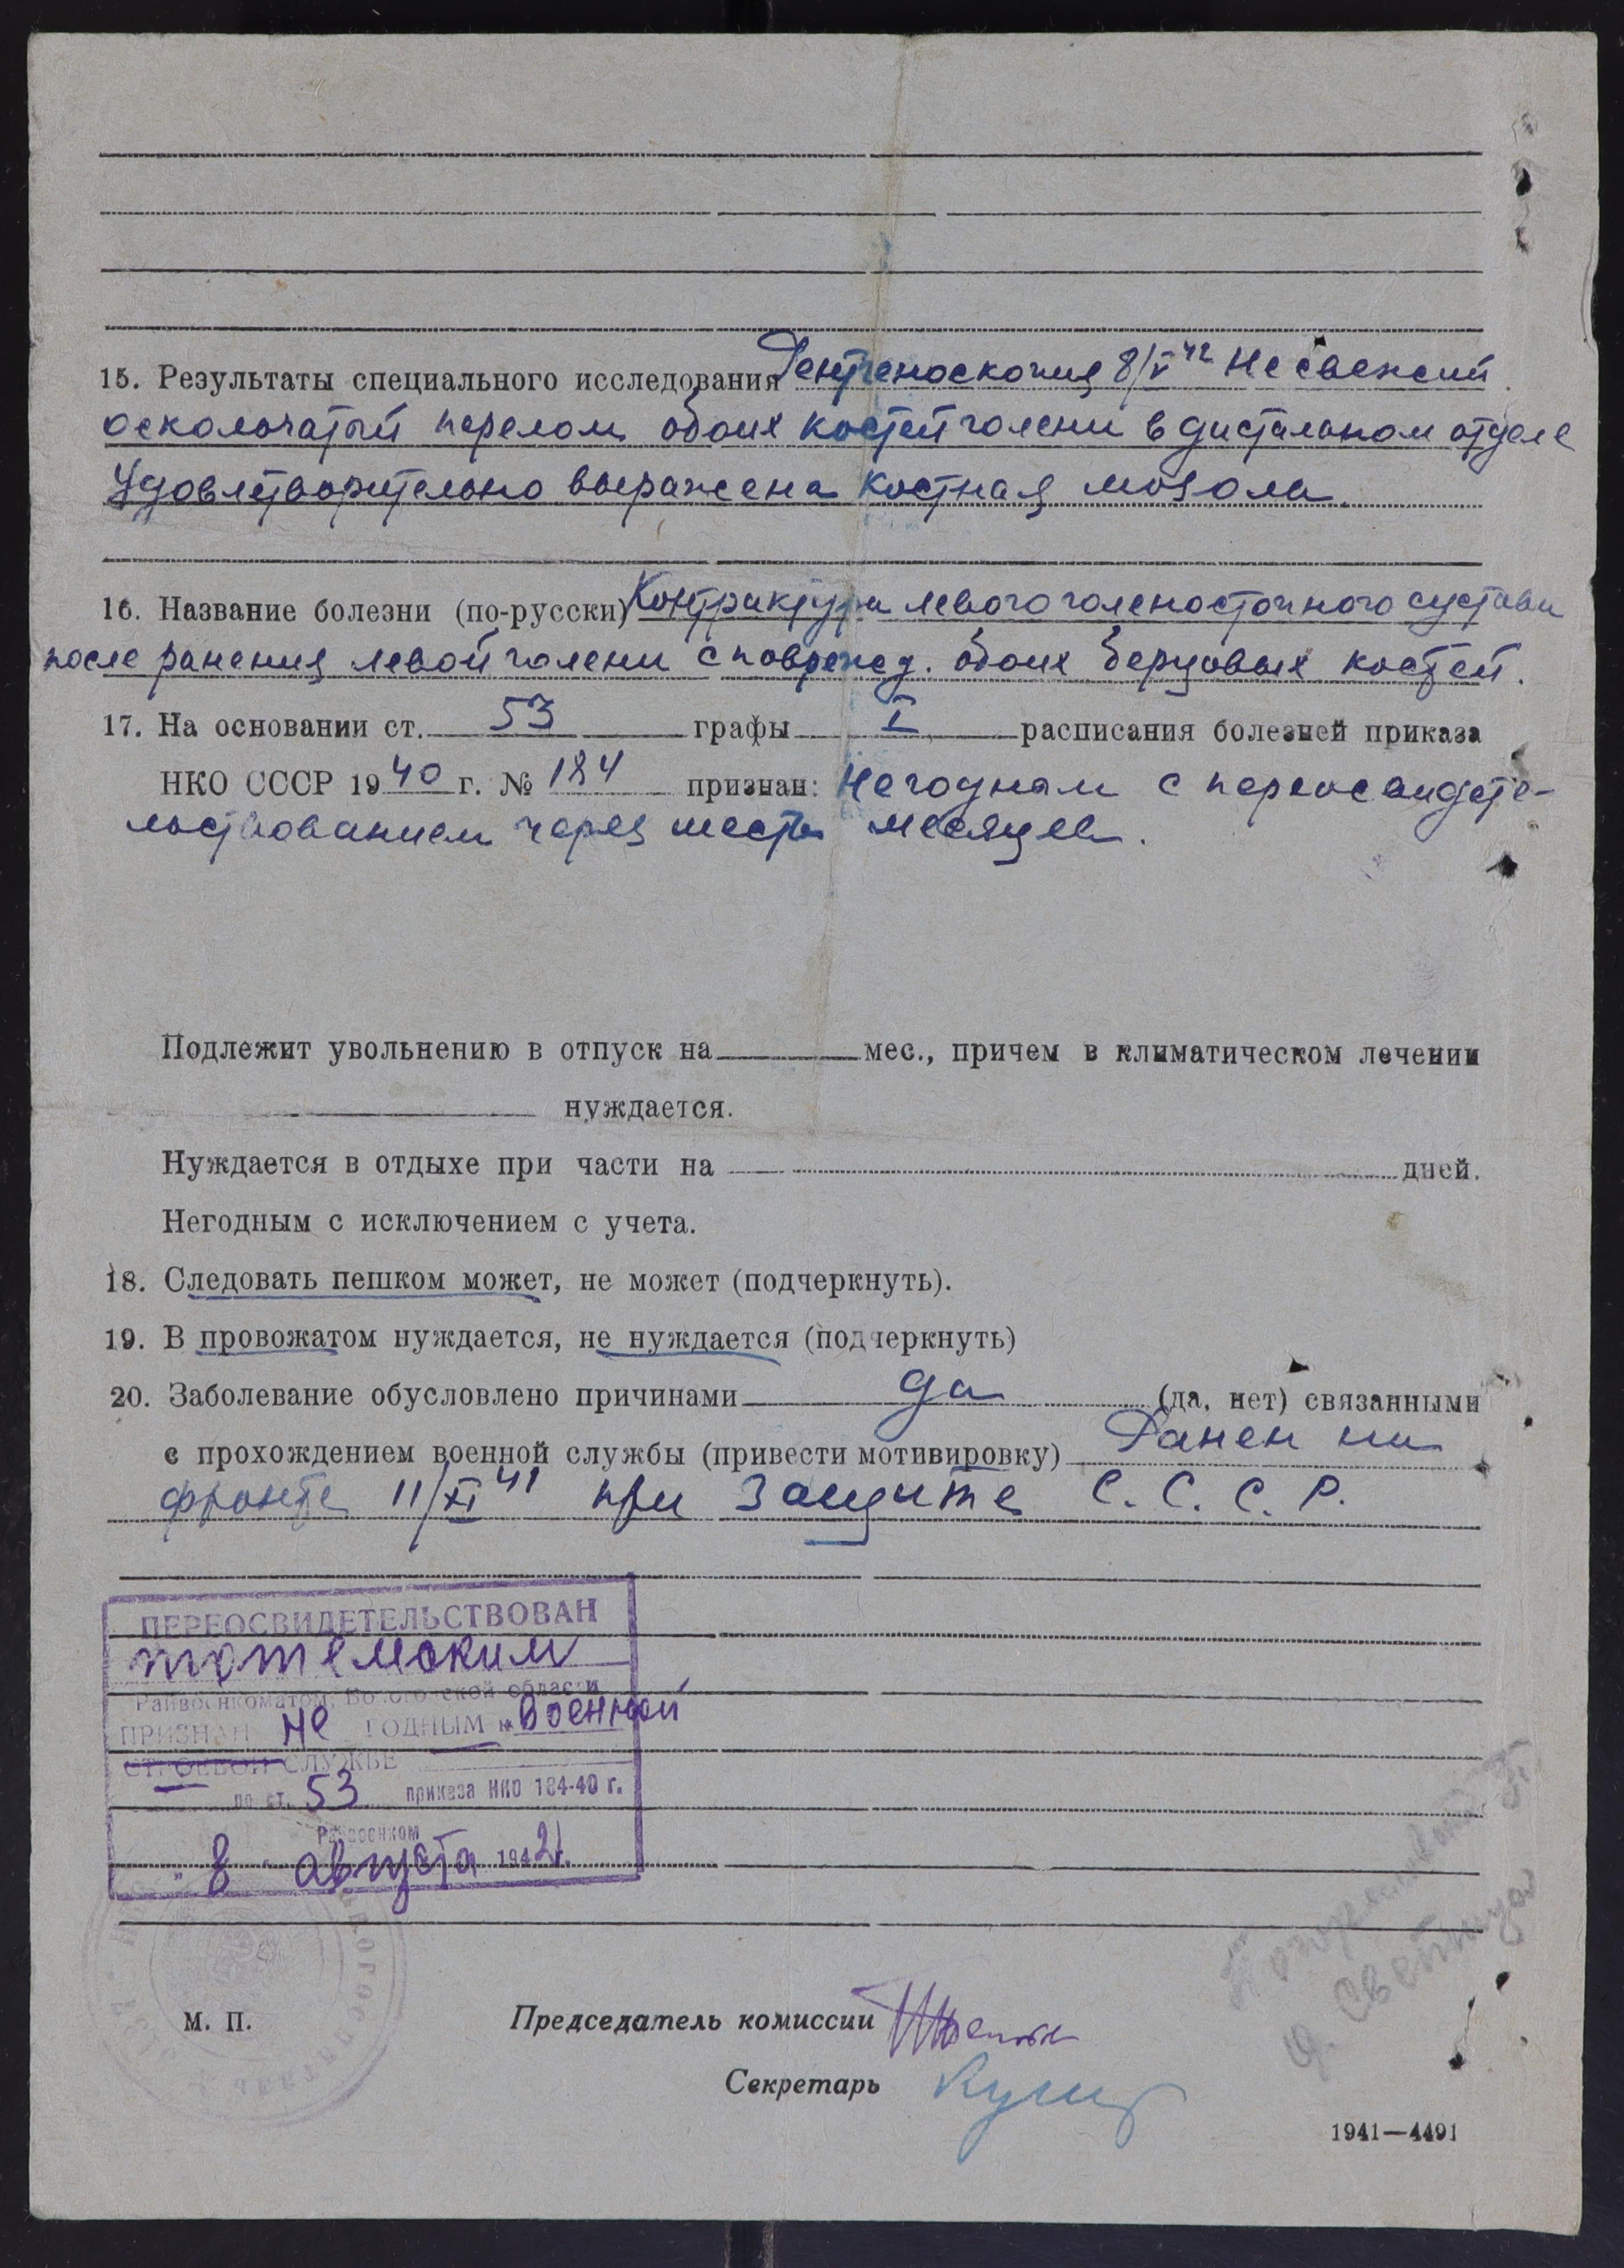 15. Результаты специального исследования Рентгеноскопия 8/V 42 Несвежий
оскольчатый перелом обоих костей голени в дистальном отделе
Удовлетворительно выражена костная мозоль.
16. Название болезни (по-русски) Контрактура левого голеностопного сустава
после ранения левой голени с поврежд. обоих берцовых костей.
17. На основании ст. 53 графы I расписания болезней приказа
НКО СССР 1940 г. № 184 признан: Негодным с переосвидете-
льствованием через шесть месяцев.
Подлежит увольнению в отпуск на мес., причем в климатическом лечении
нуждается.
Нуждается в отдыхе при части на дней.
Негодным с исключением с учета.
18. Следовать пешком может, не может (подчеркнуть).
19. В провожатом нуждается, не нуждается (подчеркнуть)
20. Заболевание обусловлено причинами да (да, нет) связанными
с прохождением военной службы (привести мотивировку) Ранен на
фронте 11/XI 41 при защите С.С.С.Р.
ПЕРЕОСВИДЕТЕЛЬСТВОВАН
тотемским
Райвоенкоматом, Вологодской области
ПРИЗНАН не ГОДНЫМ к военной
СТРОЕВОЙ СЛУЖБЕ
по ст. 53 приказа НКО 184-40 г.
Райвоенком
"8" августа 1942 г.
М. П.
Председатель комиссии
Секретарь
1941—4491